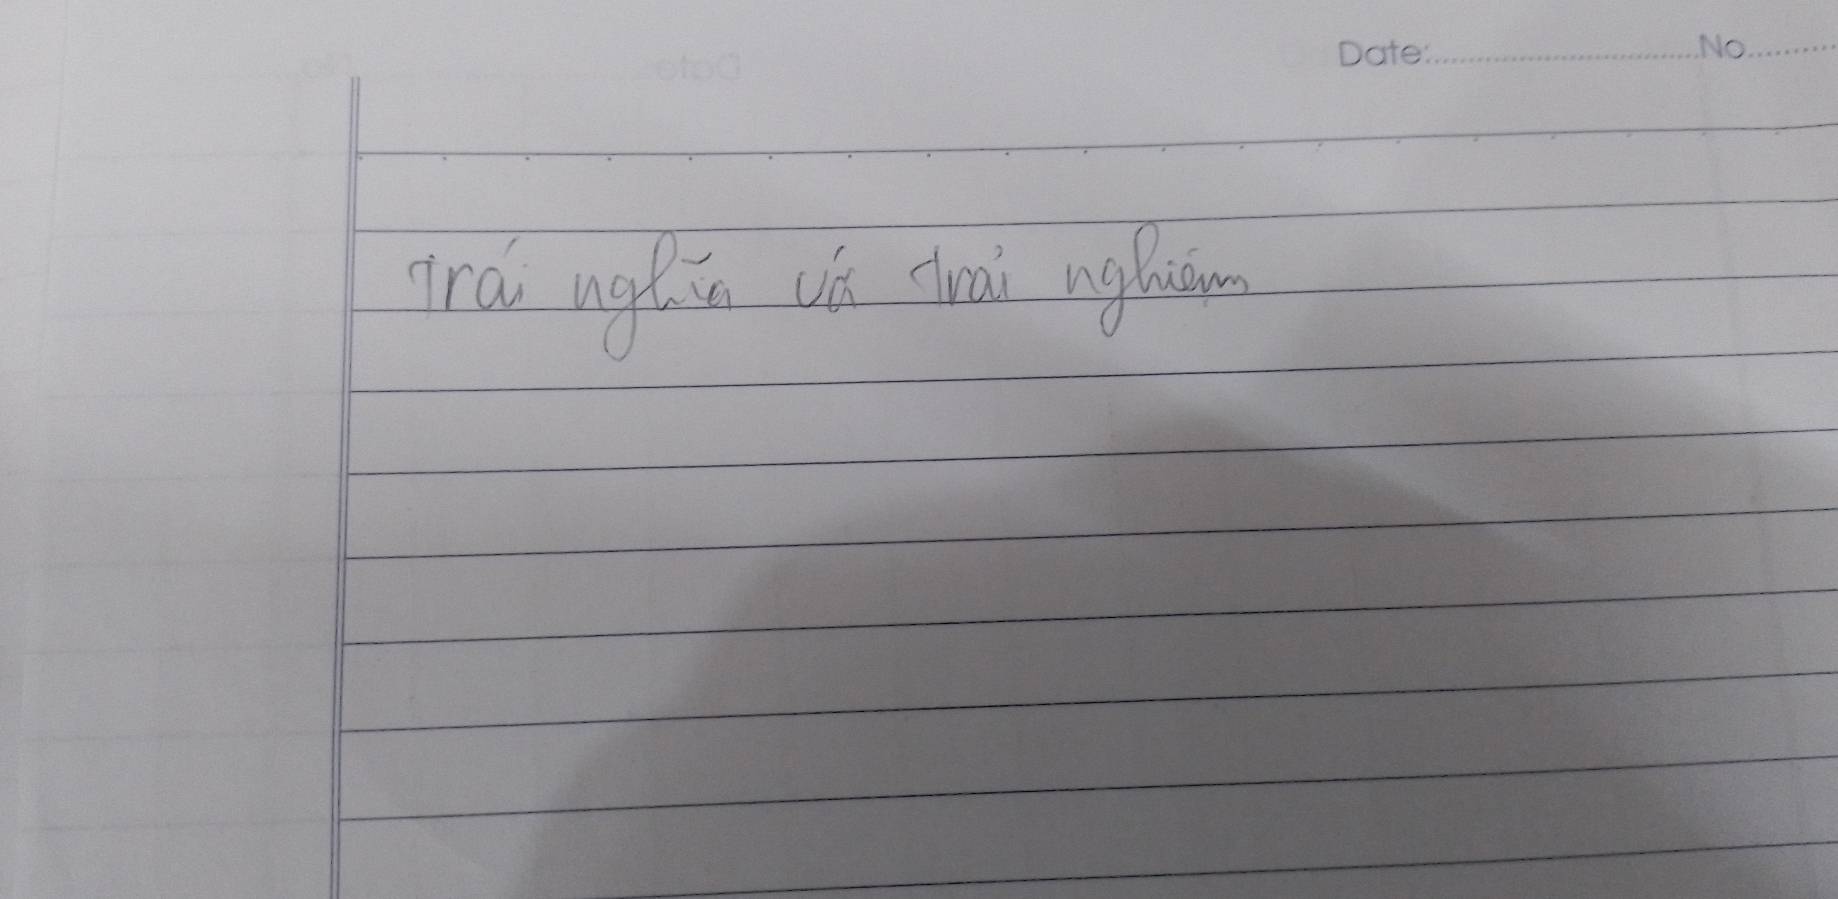 Date: No
Trái nghĩa và trải nghiệm